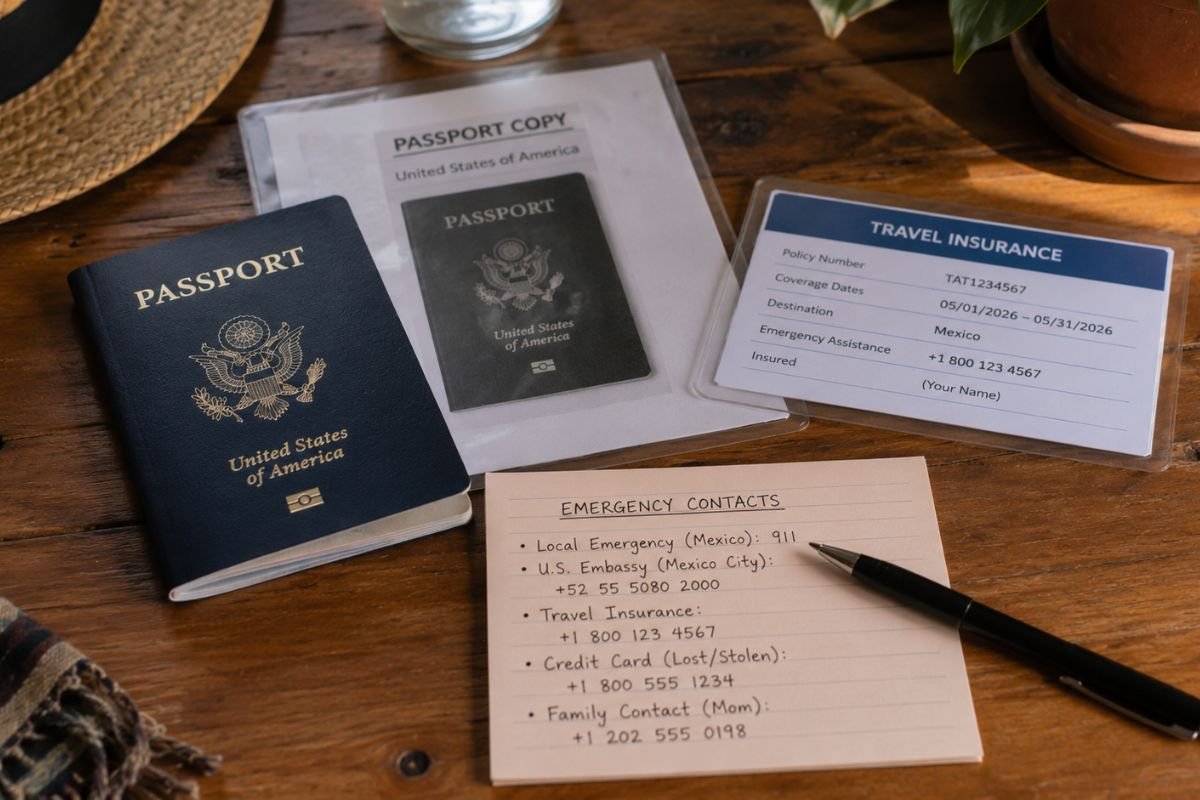 PASSPORT
United States
of America
PASSPORT COPY
United States of America
PASSPORT
United States
of America
TRAVEL INSURANCE
Policy Number TAT1234567
Coverage Dates 05/01/2026 – 05/31/2026
Destination Mexico
Emergency Assistance +1 800 123 4567
Insured (Your Name)
EMERGENCY CONTACTS
• Local Emergency (Mexico): 911
• U.S. Embassy (Mexico City):
+52 55 5080 2000
• Travel Insurance:
+1 800 123 4567
• Credit Card (Lost/Stolen):
+1 800 555 1234
• Family Contact (Mom):
+1 202 555 0198